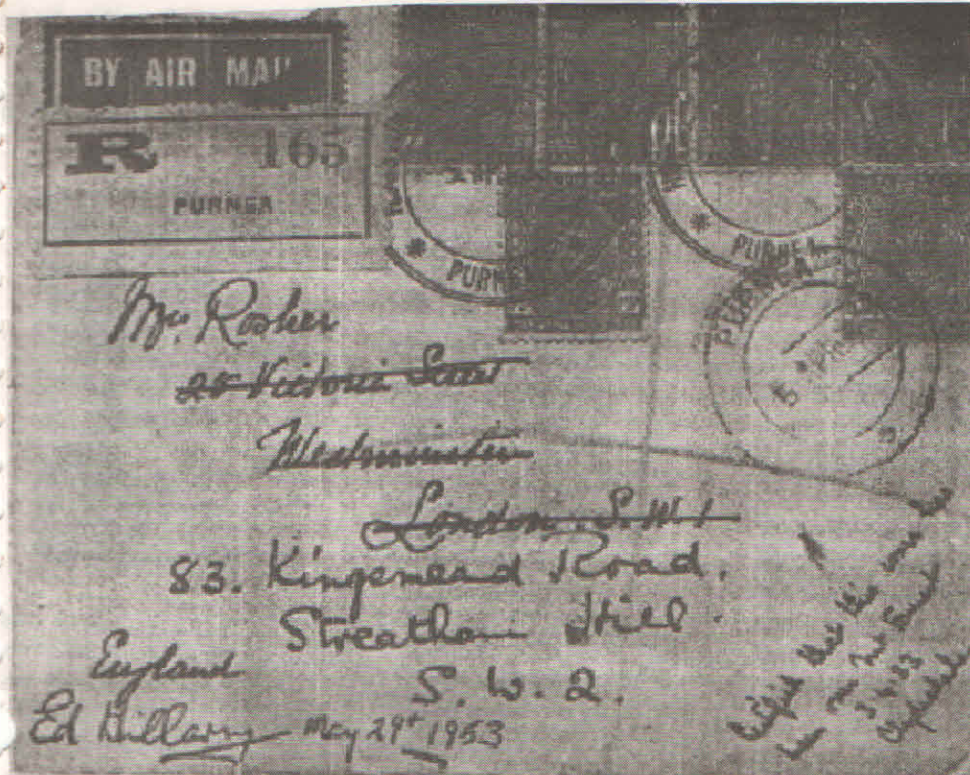 BY AIR MAI
R 165
PURNEA
PURNEA
PURNEA
Mr. Rosher
25 Victoria Street
Westminster
London. S.W.1
83. Kingsmead Road.
Streatham Hill.
S.W.2.
England
Ed Hillary May 29th 1953
3.4.53